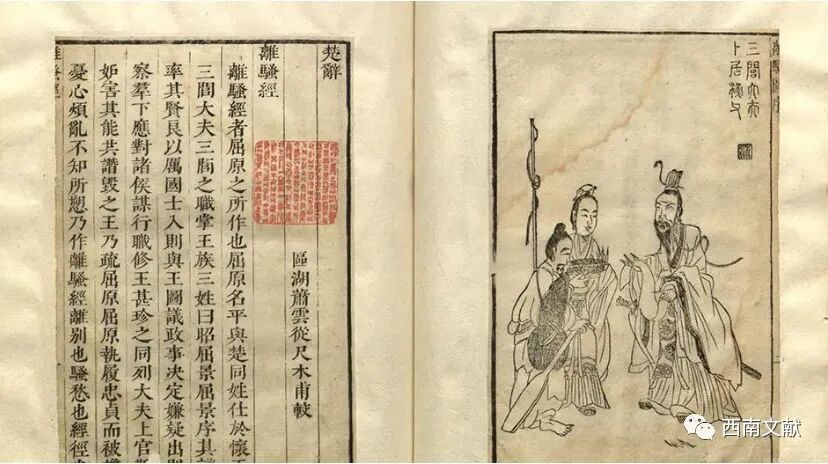 三閭大夫
卜居漁父
楚辭
離騷經
區湖蕭雲從尺木甫較
離騷經者屈原之所作也屈原名平與楚同姓仕於懷
三閭大夫三閭之職掌王族三姓曰昭屈景屈景序其
率其賢良以厲國士入則與王圖議政事決定嫌疑出則
察羣下應對諸侯謀行職修王甚珍之同列大夫上官
妒害其能共譖毀之王乃疏屈原屈原執履忠貞而被
憂心煩亂不知所愬乃作離騷經離別也騷愁也經徑
離騷經
西南文献